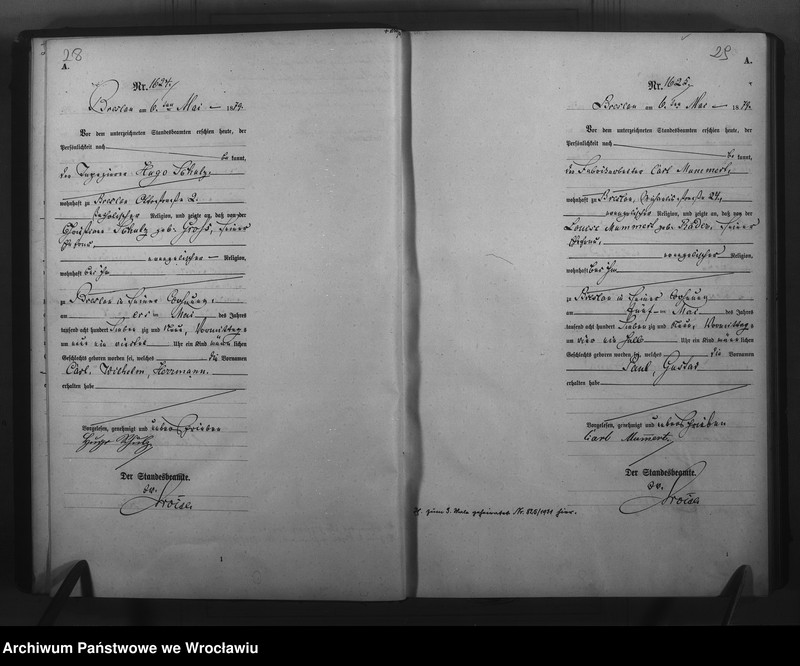 28
A.
Nr. 1624.
Breslau am 6. ten Mai 1879.
Vor dem unterzeichneten Standesbeamten erschien heute, der
Persönlichkeit nach
be kannt,
der Tapezierer Hugo Schulz,
wohnhaft zu Breslau 2.
katholischer Religion, und zeigte an, daß von der
Schulz geb. Groß, seiner
Ehefrau,
evangelischer Religion,
wohnhaft bei ihm
zu Breslau in seiner Wohnung
am drei Mai des Jahres
tausend acht hundert sieben zig und neun, Vormittags
um neun ein viertel Uhr ein Kind männlichen
Geschlechts geboren worden sei, welches die Vornamen
Carl, Wilhelm, Herrmann
erhalten habe
Vorgelesen, genehmigt und unterschrieben
Hugo Schulz
Der Standesbeamte.
29
A.
Nr. 1625.
Breslau am 6. ten Mai 1879.
Vor dem unterzeichneten Standesbeamten erschien heute, der
Persönlichkeit nach
be kannt,
der Fabrikarbeiter Carl Mummert,
wohnhaft zu Breslau, Michaelisstraße 24,
evangelischer Religion, und zeigte an, daß von der
Louise Mummert geb. seiner
Ehefrau,
evangelischer Religion,
wohnhaft bei ihm
zu Breslau in seiner Wohnung
am fünf Mai des Jahres
tausend acht hundert sieben zig und neun, Vormittags
um vier ein halb Uhr ein Kind männlichen
Geschlechts geboren worden sei, welches die Vornamen
Paul, Gustav
erhalten habe
Vorgelesen, genehmigt und unterschrieben
Carl Mummert.
Der Standesbeamte.
zum 3. Male geheiratet Nr. 1931 hier.
1
1
Archiwum Państwowe we Wrocławiu